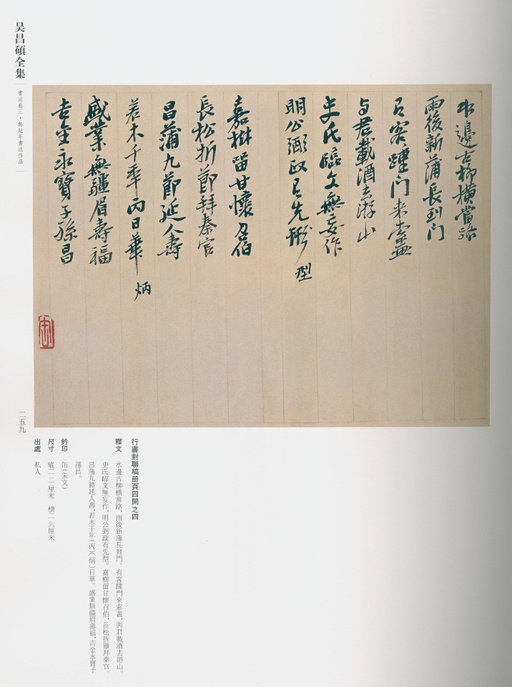 吴昌碩全集
書法卷三·無紀年書法作品
二五九
水邊古柳橫當路
雨後新蒲長到門
有客踵門來索畫
与君載酒去游山
史氏臨文無妄作
明公澍政有先型
嘉樹留甘懷召伯
長松折節拜秦官
昌蒲九節延人壽
若木千年丙日華 炳
盛業無疆眉壽福
吉金永寶子孫昌
行書對聯稿册頁四開之四
釋文 水邊古柳橫當路，雨後新蒲長到門。有客踵門來索畫，與君載酒去游山。
史氏臨文無妄作，明公澍政有先型。嘉樹留甘懷召伯，長松折節拜秦官。
昌蒲九節延人壽，若木千年〔丙〕（炳）日華。盛業無疆眉壽福，吉金永寶子
孫昌。
鈐印 缶（朱文）
尺寸 縱二二厘米 橫二六厘米
出處 私人